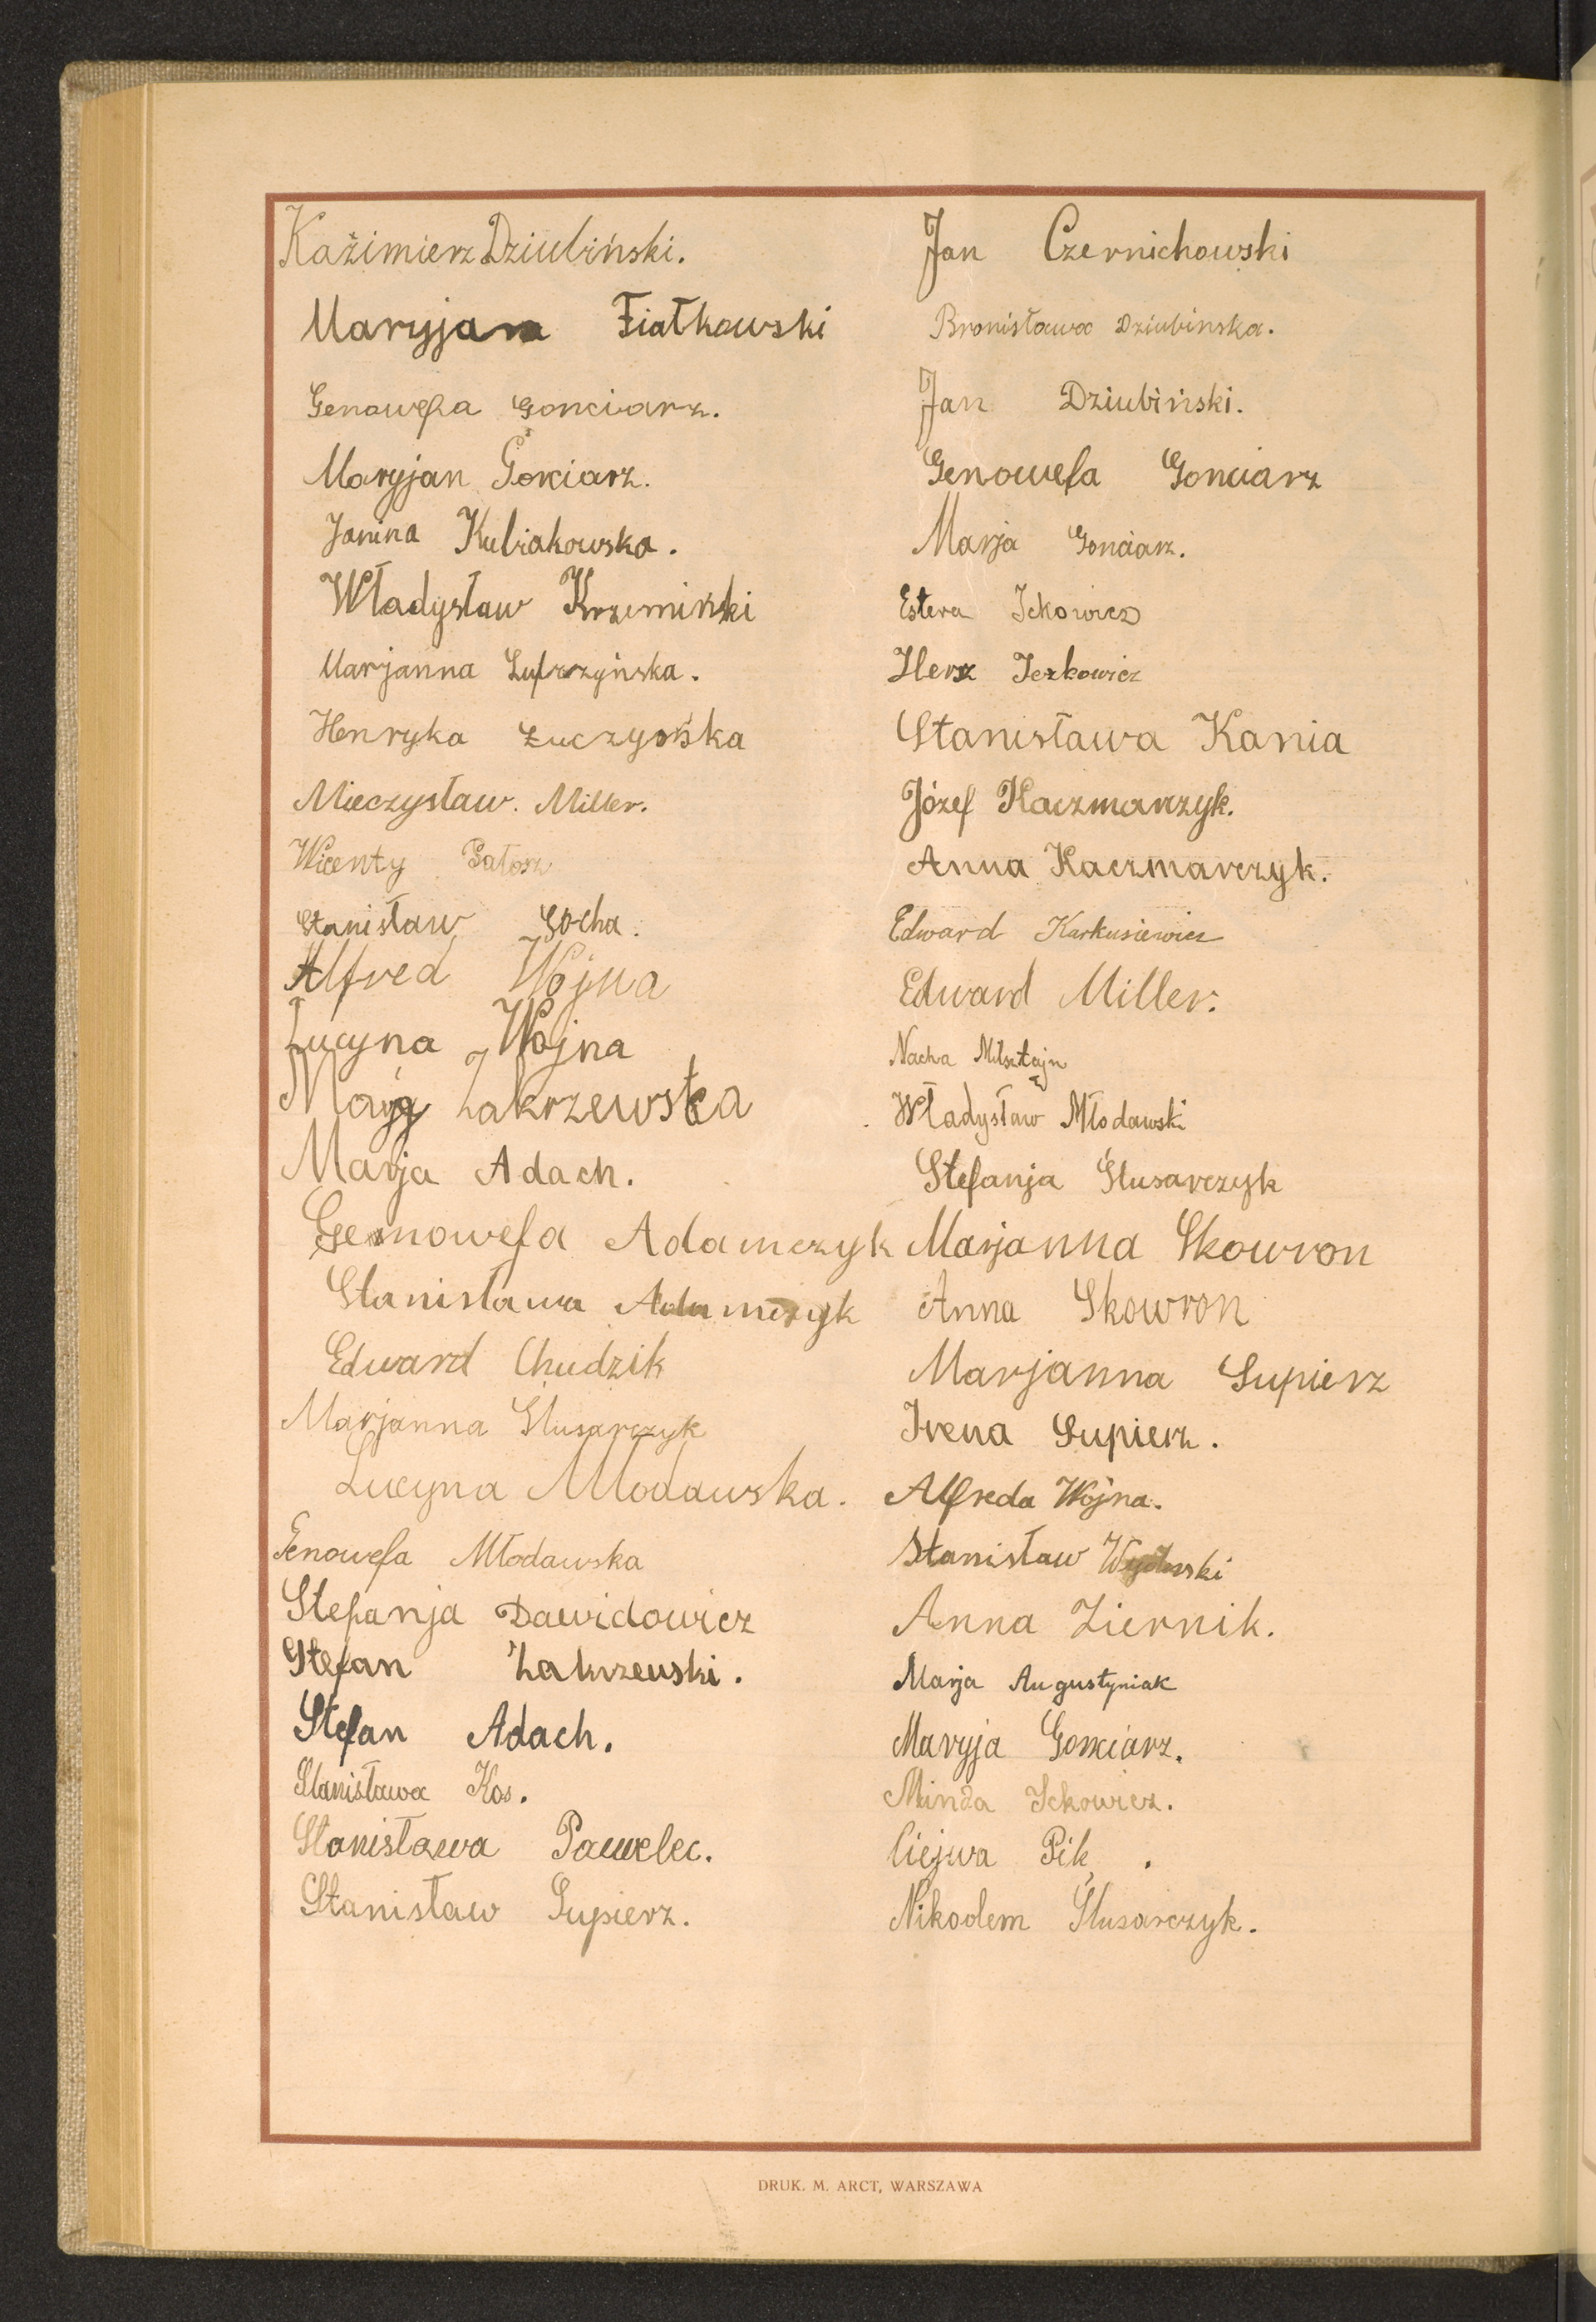 Kaźimierz Dziubiński.
Maryjan Fiałkowski
Genowefa Gonciarz.
Maryjan Gonciarz.
Janina Kubiakowska.
Władysław Krzemiński
Marjanna
Henryka Łuczyńska
Mieczysław. Miller.
Wicenty
Stanisław Socha.
Alfred Wojna
Lucyna Wojna
Zakrzewska
Marja Adach.
Genowefa Adamczyk
Stanisława Adamczyk
Edward Chudzik
Marjanna Ślusarczyk
Lucyna Młodawska.
Genowefa Młodawska
Stefanja Dawidowicz
Stefan Zakrzewski.
Stefan Adach.
Stanisława Kos.
Stanisława Pawelec.
Stanisław Supierz.
Jan Czernichowski
Bronisława Dziubinska.
Jan Dziubiński.
Genowefa Gonciarz
Marja Gonciarz.
Estera Ickowicz
Hersz Jezkowicz
Stanisława Kania
Józef Kaczmarzyk.
Anna Kaczmarczyk.
Edward Karkusiewicz
Edward Miller.
Nacha Milsztajn
Władysław Młodawski
Stefanja Ślusarczyk
Marjanna Skowron
Anna Skowron
Marjanna Supierz
Irena Supierz.
Alfreda Wojna.
Stanisław
Anna Ziernik.
Marja Augustyniak
Maryja Gonciarz.
Minda Ickowicz.
Ciejwa Pik.
Nikodem Ślusarczyk.
DRUK. M. ARCT, WARSZAWA